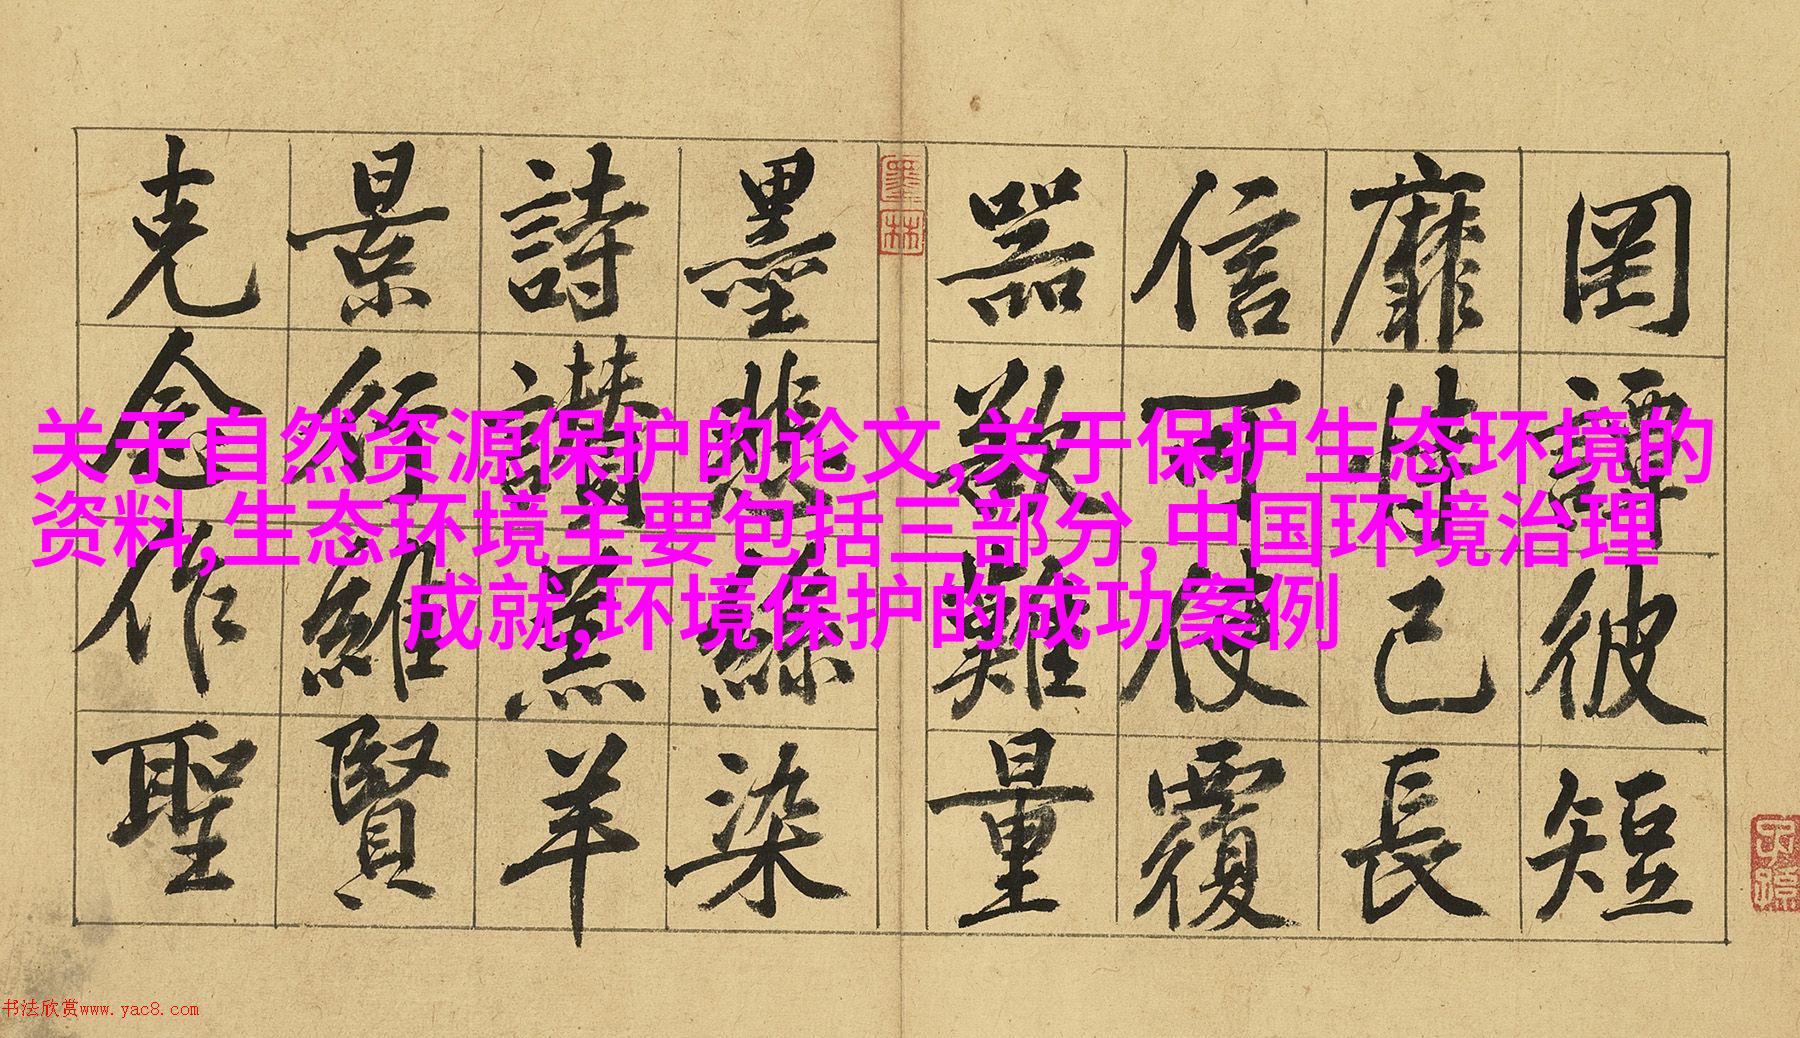 罔譚彼短
靡恃己長
信可使覆
器欲難量
墨悲絲染
詩讚羔羊
景行維賢
克念作聖
墨林
关于自然资源保护的论文,关于保护生态环境的
资料,生态环境主要包括三部分,中国环境治理
成就,环境保护的成功案例
书法欣赏www.yac8.com